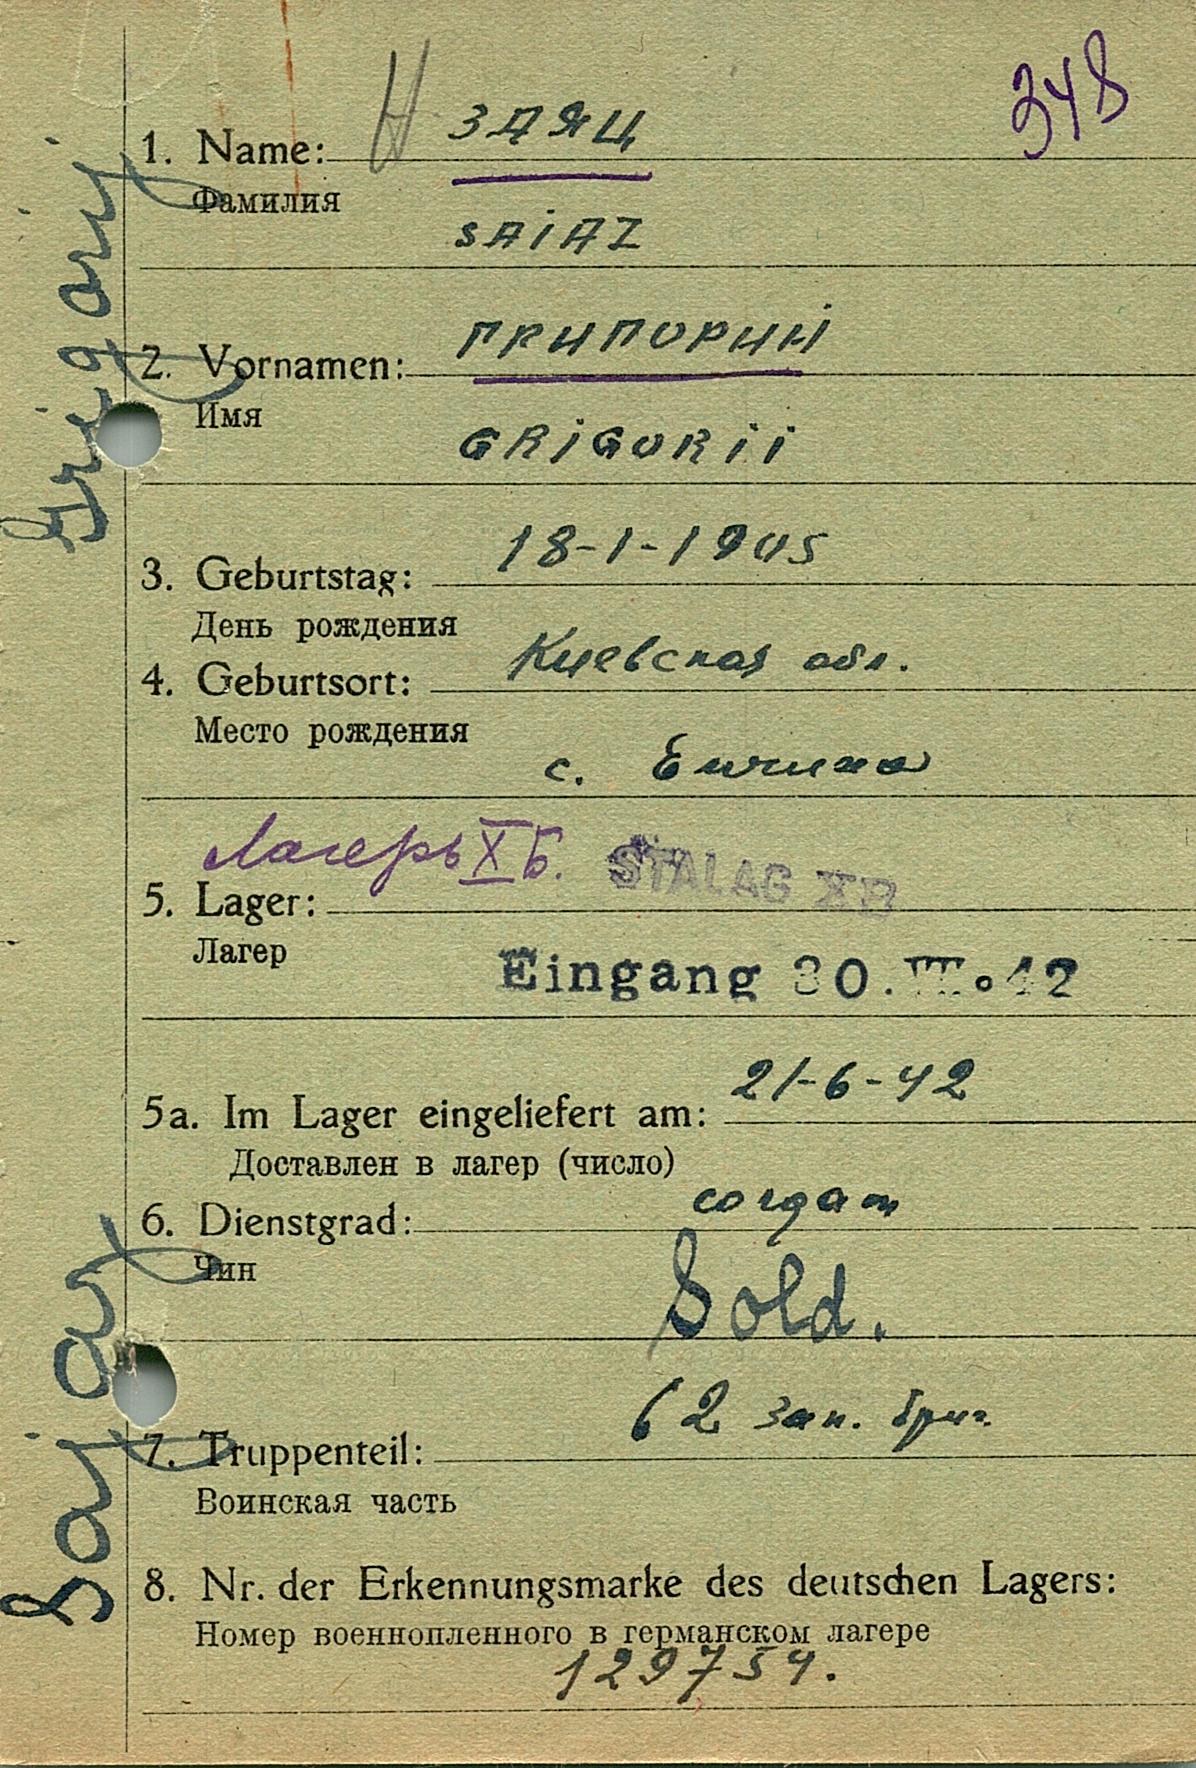 348
ЗАЯЦ
1. Name:
Фамилия
SAIAZ
ГРИГОРИЙ
2. Vornamen:
Имя
GRIGORII
18-1-1905
3. Geburtstag:
День рождения
Киевская обл.
4. Geburtsort:
Место рождения
с.
Лагерь X Б. STALAG XB
5. Lager:
Лагер
Eingang 30. .42
21-6-42
5a. Im Lager eingeliefert am:
Доставлен в лагер (число)
солдат
6. Dienstgrad:
Чин
Sold.
62 зап. бриг.
7. Truppenteil:
Воинская часть
8. Nr. der Erkennungsmarke des deutschen Lagers:
Номер военнопленного в германском лагере
129754.
Sajaz Grigorij